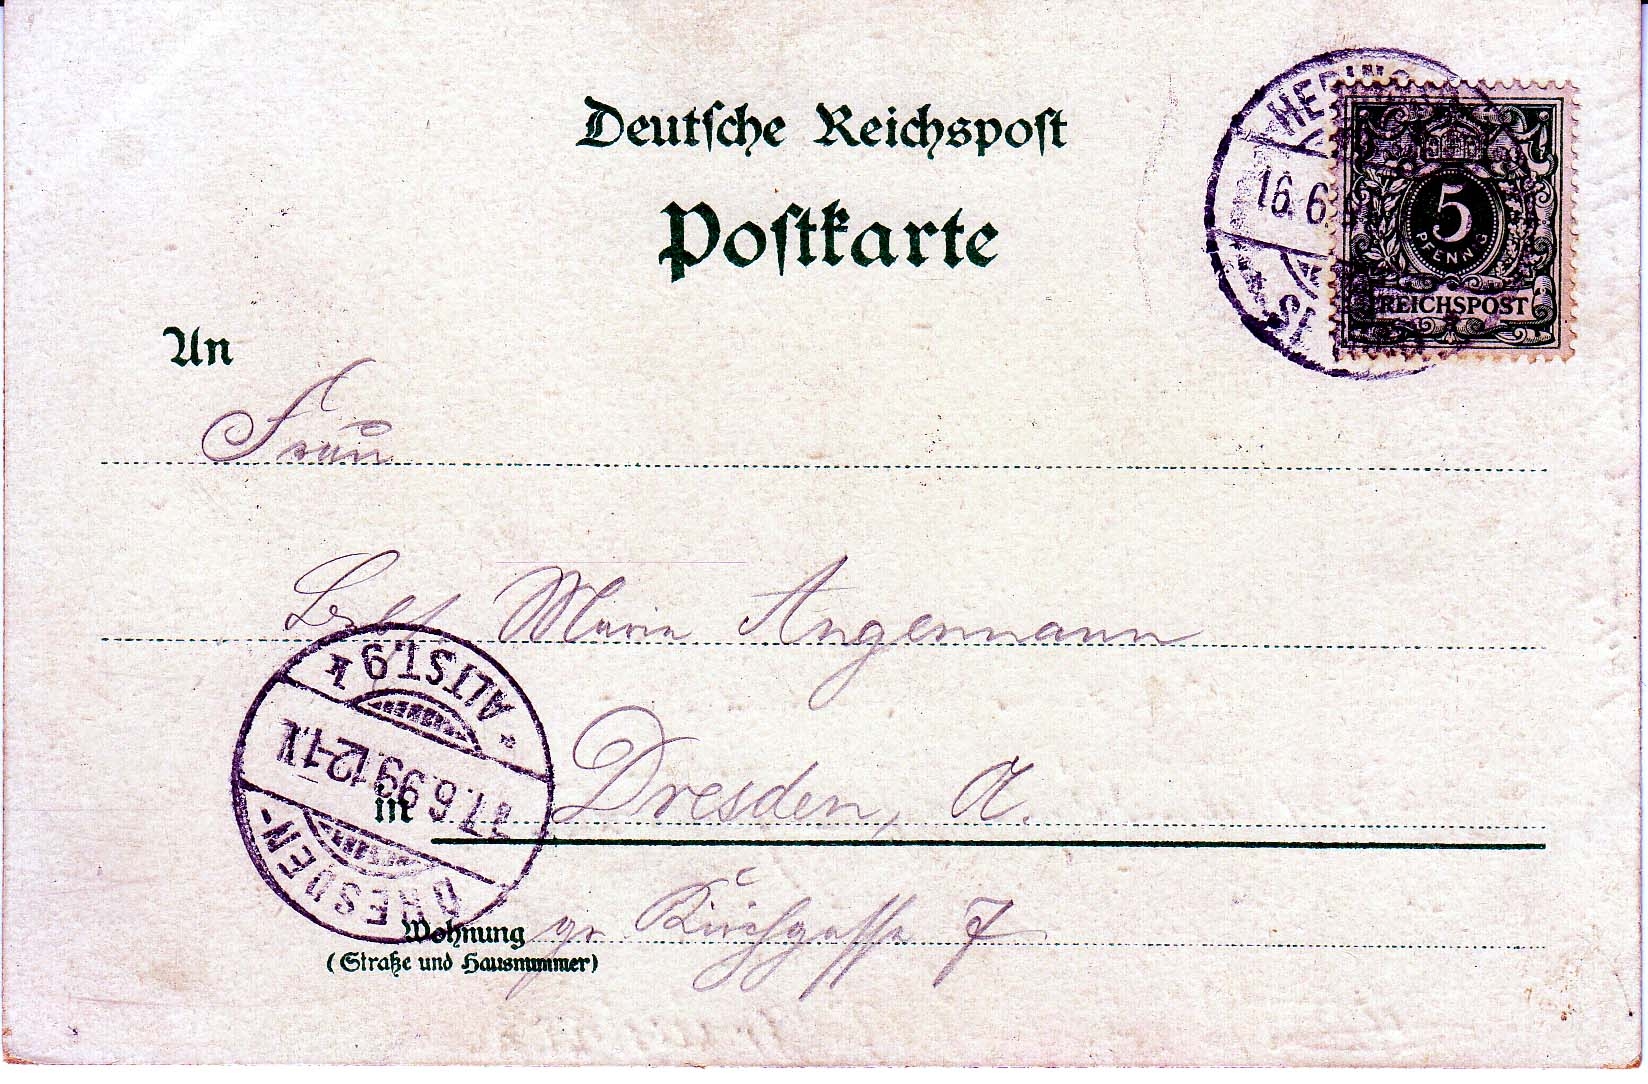 Deutsche Reichspost
Postkarte
16. 6.
5
PFENNIG
REICHSPOST
An
Frau
Marie Angermann
Dresden, A.
gr Kirchgasse 7
in
Wohnung
(Straße und Hausnummer)
DRESDEN-
17.6.99.12-1.N.
* ALTST.9 k